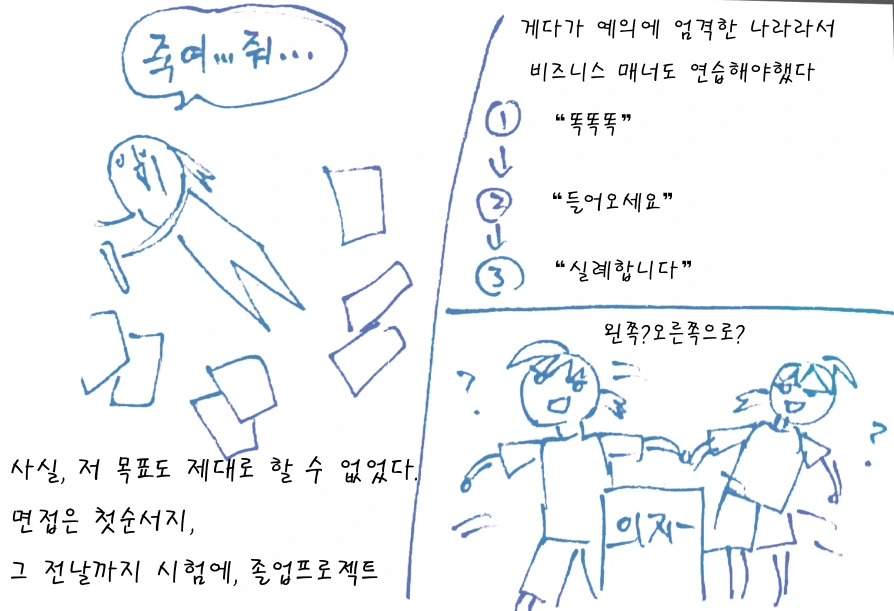 죽여... 줘...
사실, 저 목표도 제대로 할 수 없었다.
면접은 첫순서지,
그 전날까지 시험에, 졸업프로젝트
게다가 예의에 엄격한 나라라서
비즈니스 매너도 연습해야했다
① “똑똑똑”
② “들어오세요”
③ “실례합니다”
왼쪽?오른쪽으로?
?
?
의자-